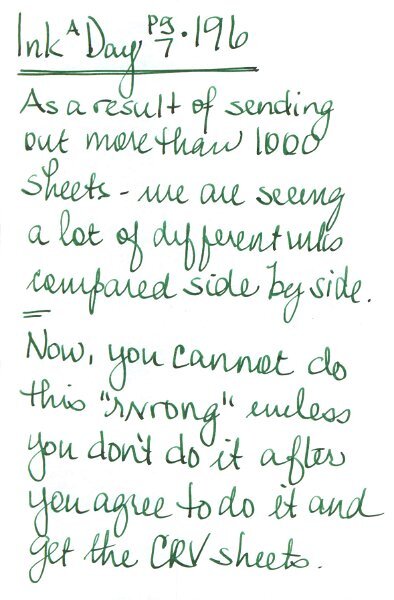 Ink A Day pg 7 · 196
As a result of sending
out more than 1000
sheets - we are seeing
a lot of different inks
compared side by side.
Now, you cannot do
this "wrong" unless
you don't do it after
you agree to do it and
get the CRV sheets.